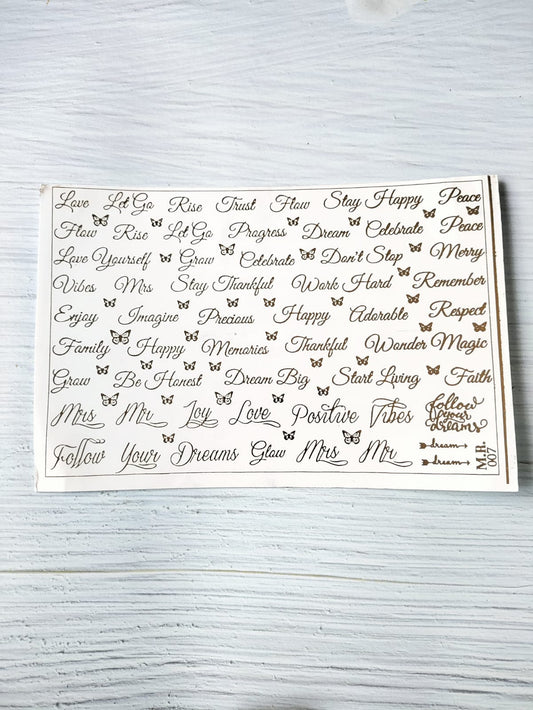 Love Let Go Rise Trust Flow Stay Happy Peace
Flow Rise Let Go Progress Dream Celebrate Peace
Love Yourself Grow Celebrate Don't Stop Merry
Vibes Mrs Stay Thankful Work Hard Remember
Enjoy Imagine Precious Happy Adorable Respect
Family Happy Memories Thankful Wonder Magic
Grow Be Honest Dream Big Start Living Faith
Mrs Mr Joy Love Positive Vibes
follow
your
dreams
Follow Your Dreams Glow Mrs Mr
dream
dream
M.R.
007